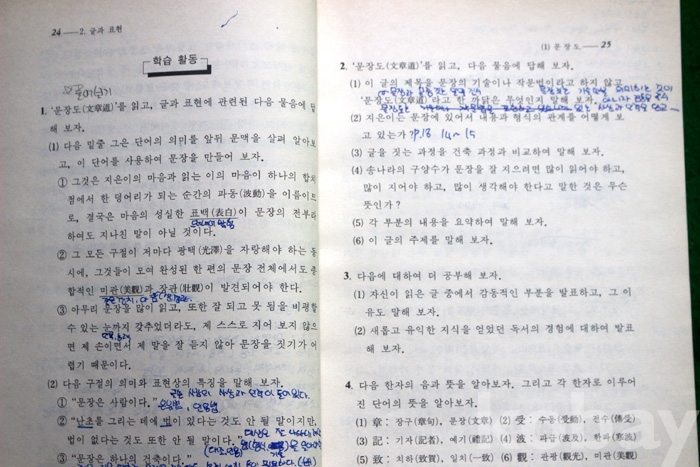 24 — 2. 글과 표현
학습 활동
1. ‘문장도(文章道)’를 읽고, 글과 표현에 관련된 다음 물음에 답
해 보자.
(1) 다음 밑줄 그은 단어의 의미를 앞뒤 문맥을 살펴 알아보
고, 이 단어를 사용하여 문장을 만들어 보자.
① 그것은 지은이의 마음과 읽는 이의 마음이 하나의 합치
점에서 한 덩어리가 되는 순간의 파동(波動)을 이름이므
로, 결국은 마음의 성실한 표백(表白)이 문장의 전부라
하여도 지나친 말이 아닐 것이다.
② 그 모든 구절이 저마다 광택(光澤)을 자랑해야 하는 동
시에, 그것들이 모여 완성된 한 편의 문장 전체에서도 종
합적인 미관(美觀)과 장관(壯觀)이 발견되어야 한다.
③ 아무리 문장을 많이 읽고, 또한 잘 되고 못 됨을 비평할
수 있는 눈까지 갖추었더라도, 제 스스로 지어 보지 않으
면 제 손이면서 제 말을 잘 듣지 않아 문장을 짓기가 어
렵기 때문이다.
(2) 다음 구절의 의미와 표현상의 특징을 말해 보자.
① “문장은 사람이다.”
② “난초를 그리는 데에 법이 있다는 것도 안 될 말이지만,
법이 없다는 것도 또한 안 될 말이다.”
③ “문장은 하나의 건축이다.”
(1) 문 장 도 — 25
2. ‘문장도(文章道)’를 읽고, 다음 물음에 답해 보자.
(1) 이 글의 제목을 문장의 기술이나 작문법이라고 하지 않고
‘문장도(文章道)’라고 한 까닭은 무엇인지 말해 보자.
(2) 지은이는 문장에 있어서 내용과 형식의 관계를 어떻게 보
고 있는가? P.18 14~15
(3) 글을 짓는 과정을 건축 과정과 비교하여 말해 보자.
(4) 송나라의 구양수가 문장을 잘 지으려면 많이 읽어야 하고,
많이 지어야 하고, 많이 생각해야 한다고 말한 것은 무슨
뜻인가?
(5) 각 부분의 내용을 요약하여 말해 보자.
(6) 이 글의 주제를 말해 보자.
3. 다음에 대하여 더 공부해 보자.
(1) 자신이 읽은 글 중에서 감동적인 부분을 발표하고, 그 이
유도 말해 보자.
(2) 새롭고 유익한 지식을 얻었던 독서의 경험에 대하여 발표
해 보자.
4. 다음 한자의 음과 뜻을 알아보자. 그리고 각 한자로 이루어
진 단어의 뜻을 알아보자.
(1) 章: 장구(章句), 문장(文章) (2) 受: 수동(受動), 전수(傳受)
(3) 記: 기자(記者), 예기(禮記) (4) 波: 파급(波及), 한파(寒波)
(5) 致: 치하(致賀), 일치(一致) (6) 觀: 관광(觀光), 미관(美觀)